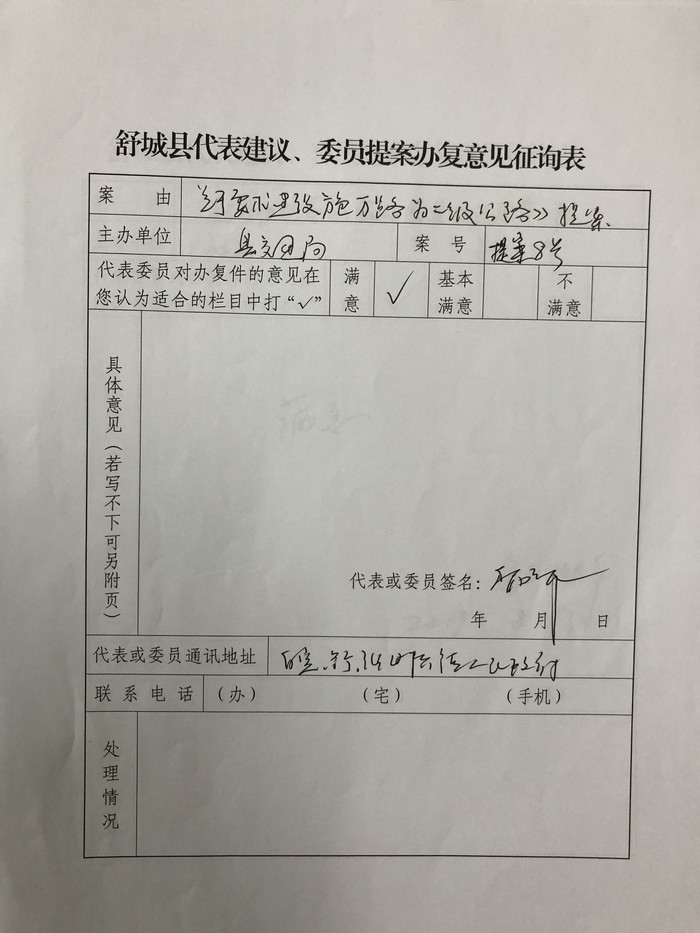 舒城县代表建议、委员提案办复意见征询表
案 由 建设施 路为二级公路》提案
主办单位 县交 局 案 号 提案8号
代表委员对办复件的意见在
您认为适合的栏目中打“✓”
满意 ✓ 基本满意 不满意
具体意见（若写不下可另附页）
代表或委员签名：
年 月 日
代表或委员通讯地址
联系电话 （办） （宅） （手机）
处理情况